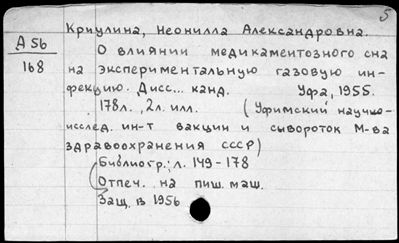 5
Криулина, Неонилла Александровна.
А 56
168
О влиянии медикаментозного сна
на экспериментальную газовую ин-
фекцию. Дисс... канд. Уфа, 1955.
178л., 2л. илл. (Уфимский научно-
исслед. ин-т вакцин и сывороток М-ва
здравоохранения СССР)
Библиогр.: л. 149-178
Отпеч. на пиш. маш.
Защ. в 1956